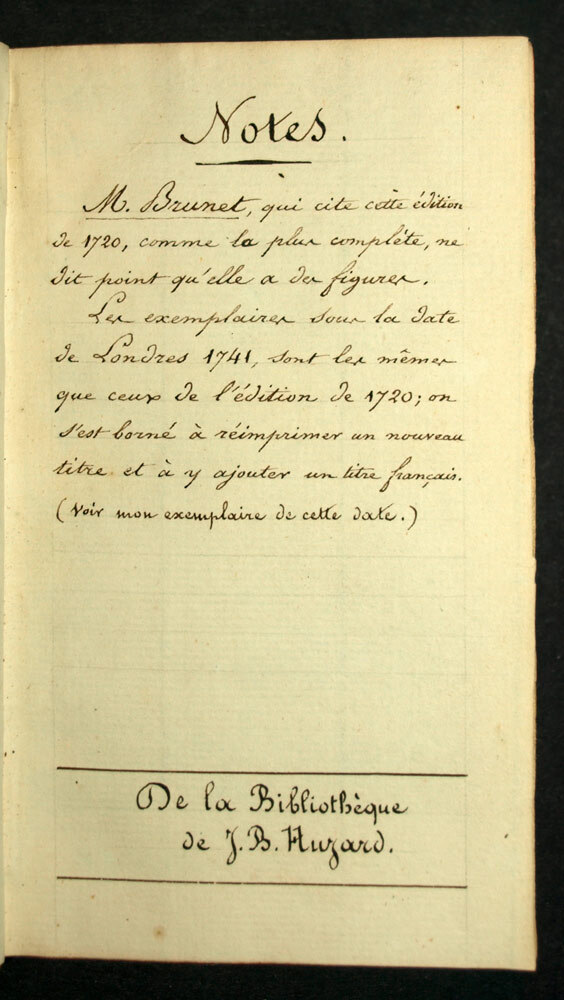 Notes.
M. Brunet, qui cite cette édition
de 1720, comme la plus complète, ne
dit point qu'elle a des figures.
Les exemplaires sous la date
de Londres 1741, sont les mêmes
que ceux de l'édition de 1720; on
s'est borné à réimprimer un nouveau
titre et à y ajouter un titre français.
(Voir mon exemplaire de cette date.)
De la Bibliothèque
de J. B. Huzard.